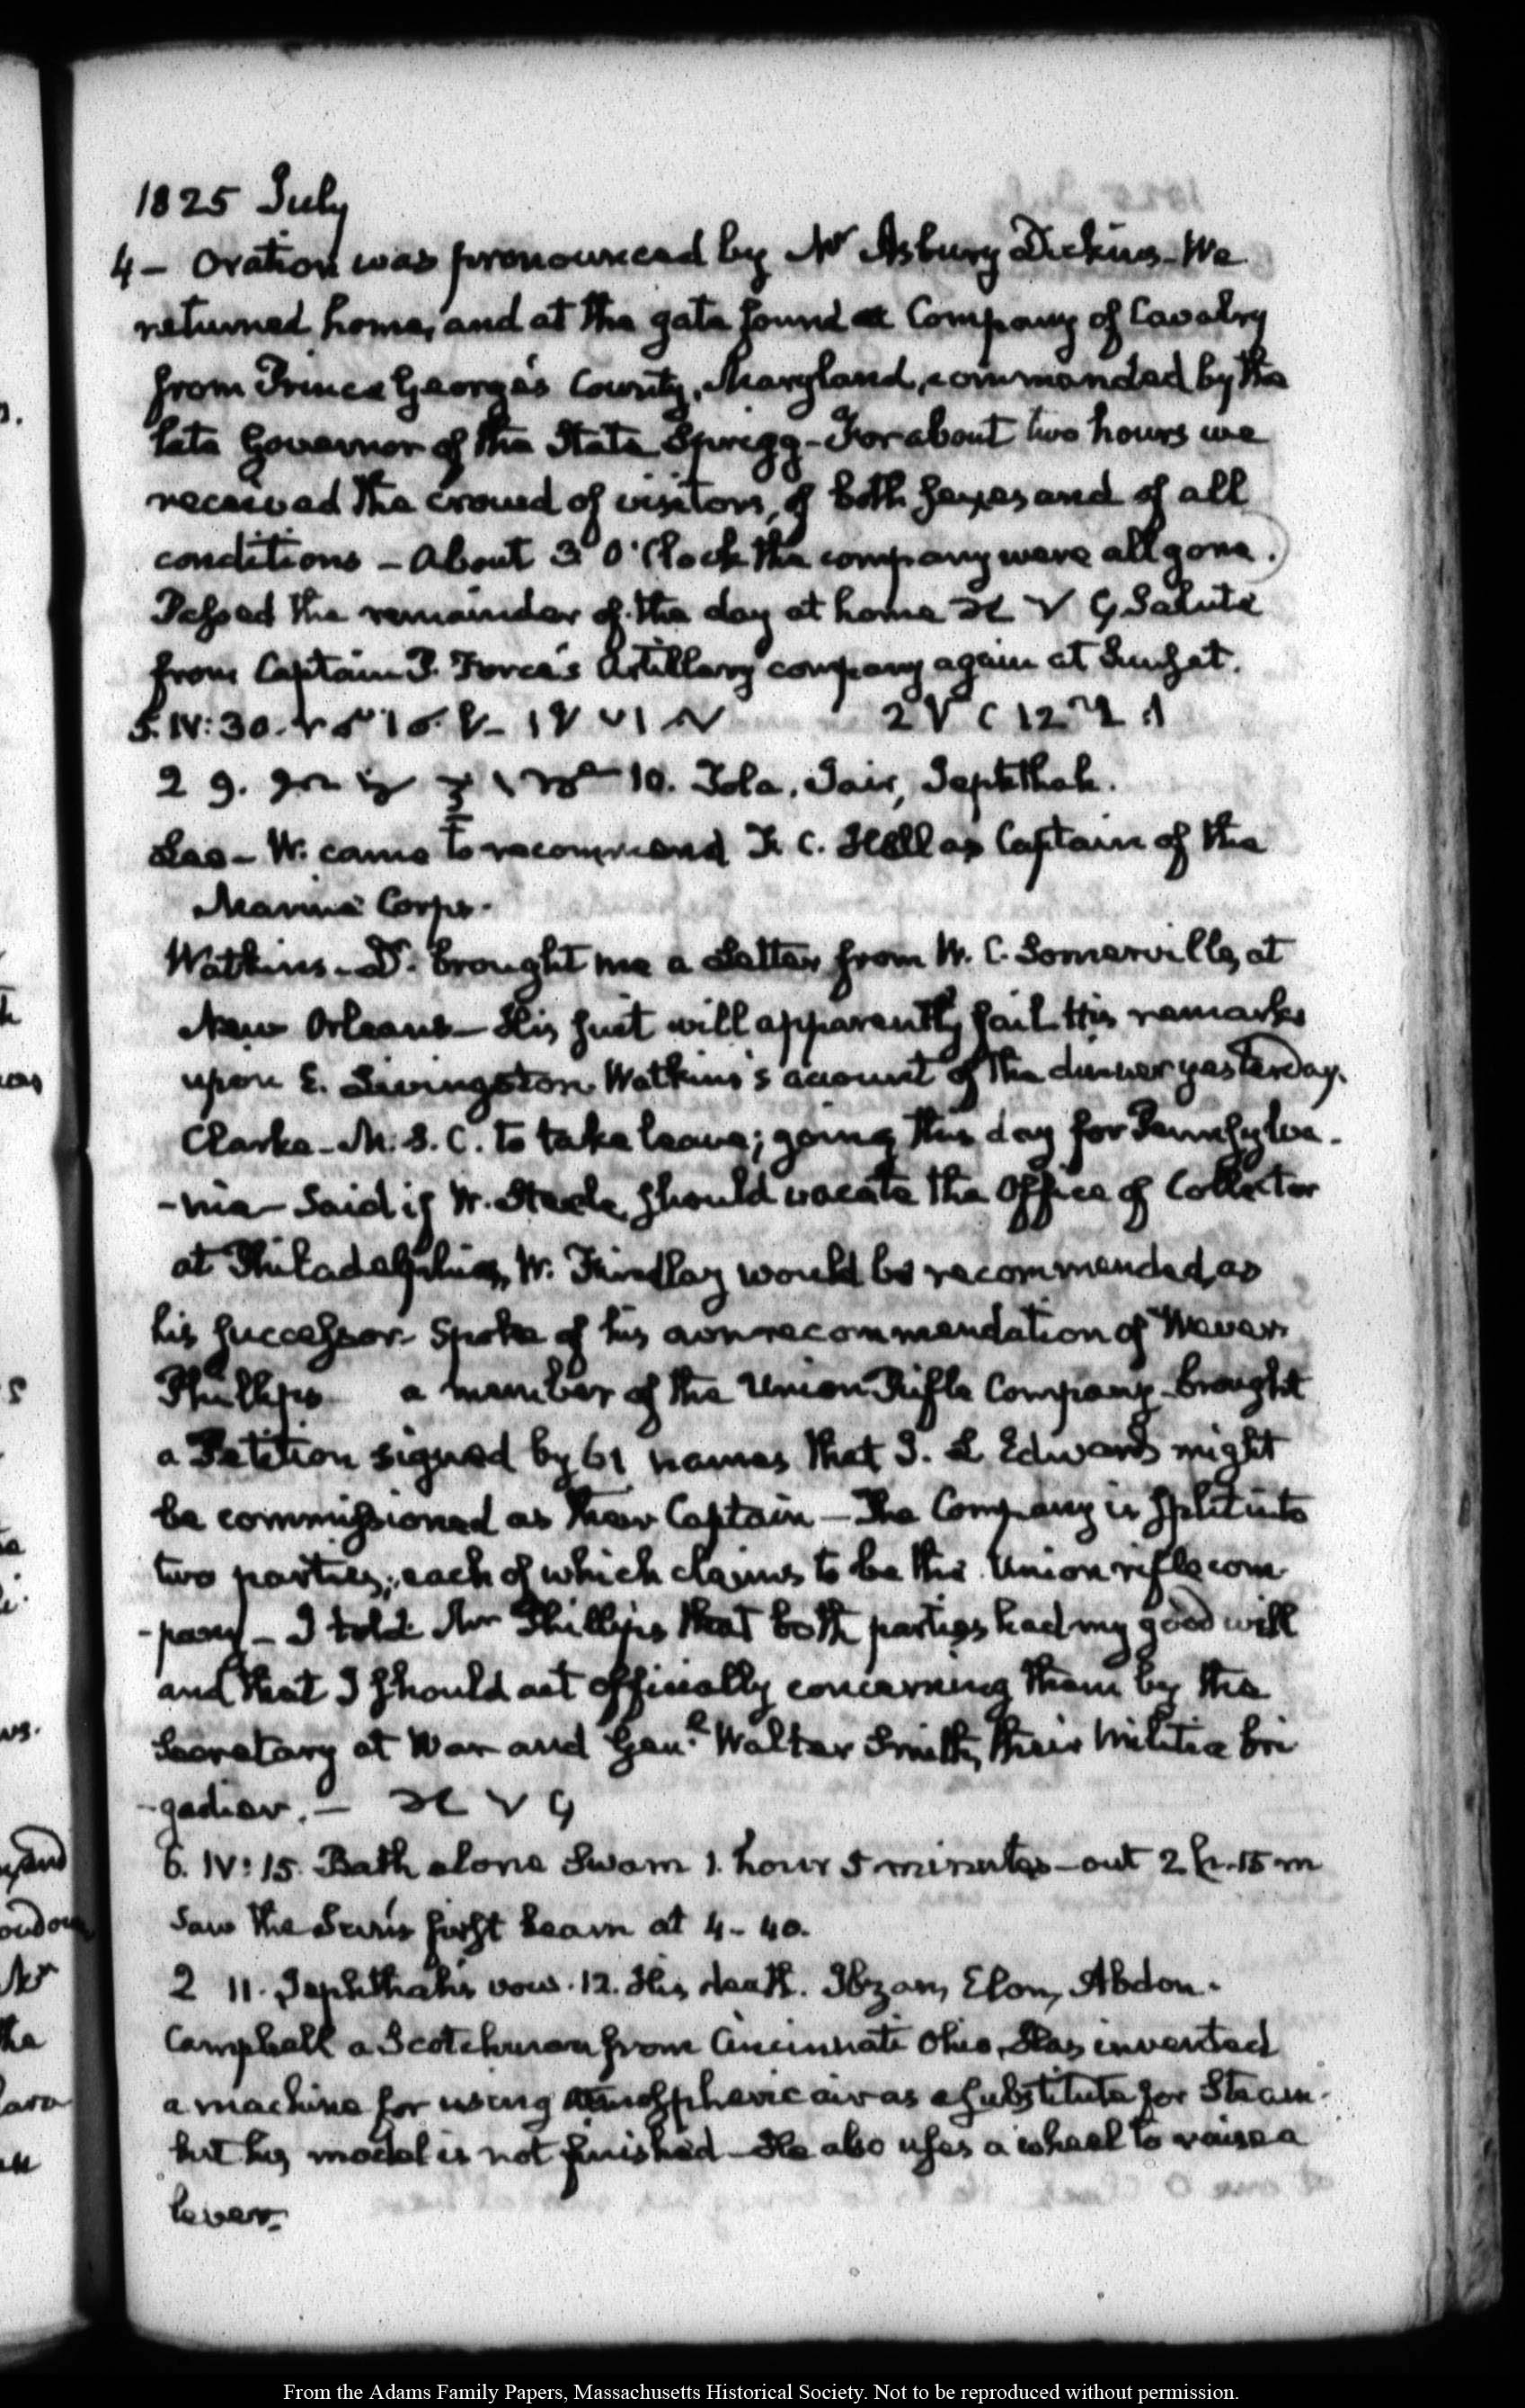 1825 July
4 – Oration was pronounced by Mr Asbury Dickins – We
returned home, and at the gate found a Company of Cavalry
from Prince George's County, Maryland, commanded by the
late Governor of the State Sprigg – For about two hours we
received the crowd of visitors, of both sexes and of all
conditions – About 3 O'Clock the company were all gone.
Passed the remainder of the day at home Salute
from Captain P. Force's Artillery company again at Sunset.
5. IV: 30.
2 9. 10. Tola, Jair, Jephthah.
Lee – W. came to recommend F. C. Hall as Captain of the
Marine Corps.
Watkins – D. brought me a Letter from W. C. Somerville, at
New Orleans – His suit will apparently fail His remarks
upon E. Livingston Watkins's account of the dinner yesterday.
Clarke – M. S. C. to take leave; going this day for Pennsylva-
-nia – Said if W. Steele should vacate the Office of Collector
at Philadelphia, W. Findlay would be recommended, as
his successor Spoke of his own recommendation of Wever
Phillips a member of the Union Rifle Company – brought
a Petition signed by 61 names that J. L Edwards might
be commissioned as their Captain – The Company is split into
two parties; each of which claims to be the Union rifle com
-pany – I told Mr Phillips that both parties had my good will
and that I should act officially concerning them by the
Secretary at War and Genl. Walter Smith, their Militia bri
-gadier. –
6. IV: 15. Bath alone Swam 1. hour 5 minutes – out 2 h. 15 m
Saw the Sun's first beam at 4 – 40.
2 11. Jephthah's vow. 12. His death. Ibzan, Elon, Abdon.
Campbell a Scotchman from Cincinnati Ohio, Has invented
a machine for using atmospheric air as a substitute for Steam.
but his model is not finished – He also uses a wheel to raise a
lever.
From the Adams Family Papers, Massachusetts Historical Society. Not to be reproduced without permission.